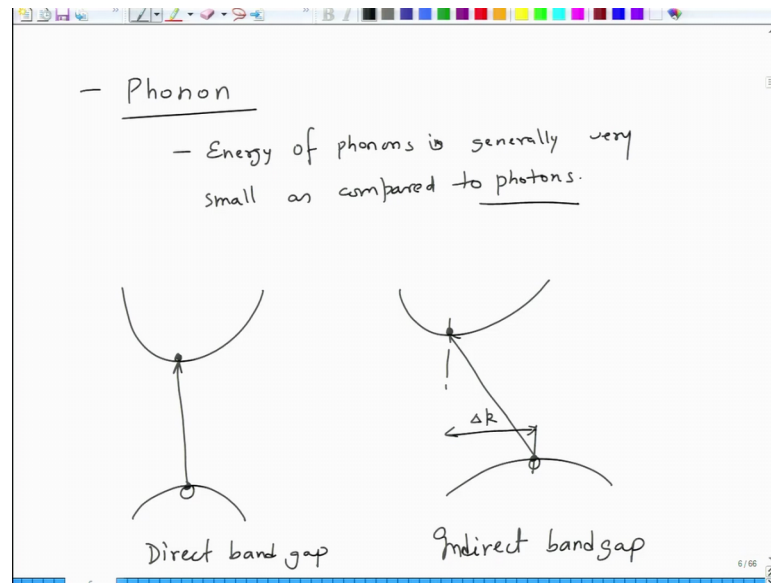 B I
- Phonon
- Energy of phonons is generally very
small as compared to photons.
Δk
Direct band gap
Indirect bandgap
6/66